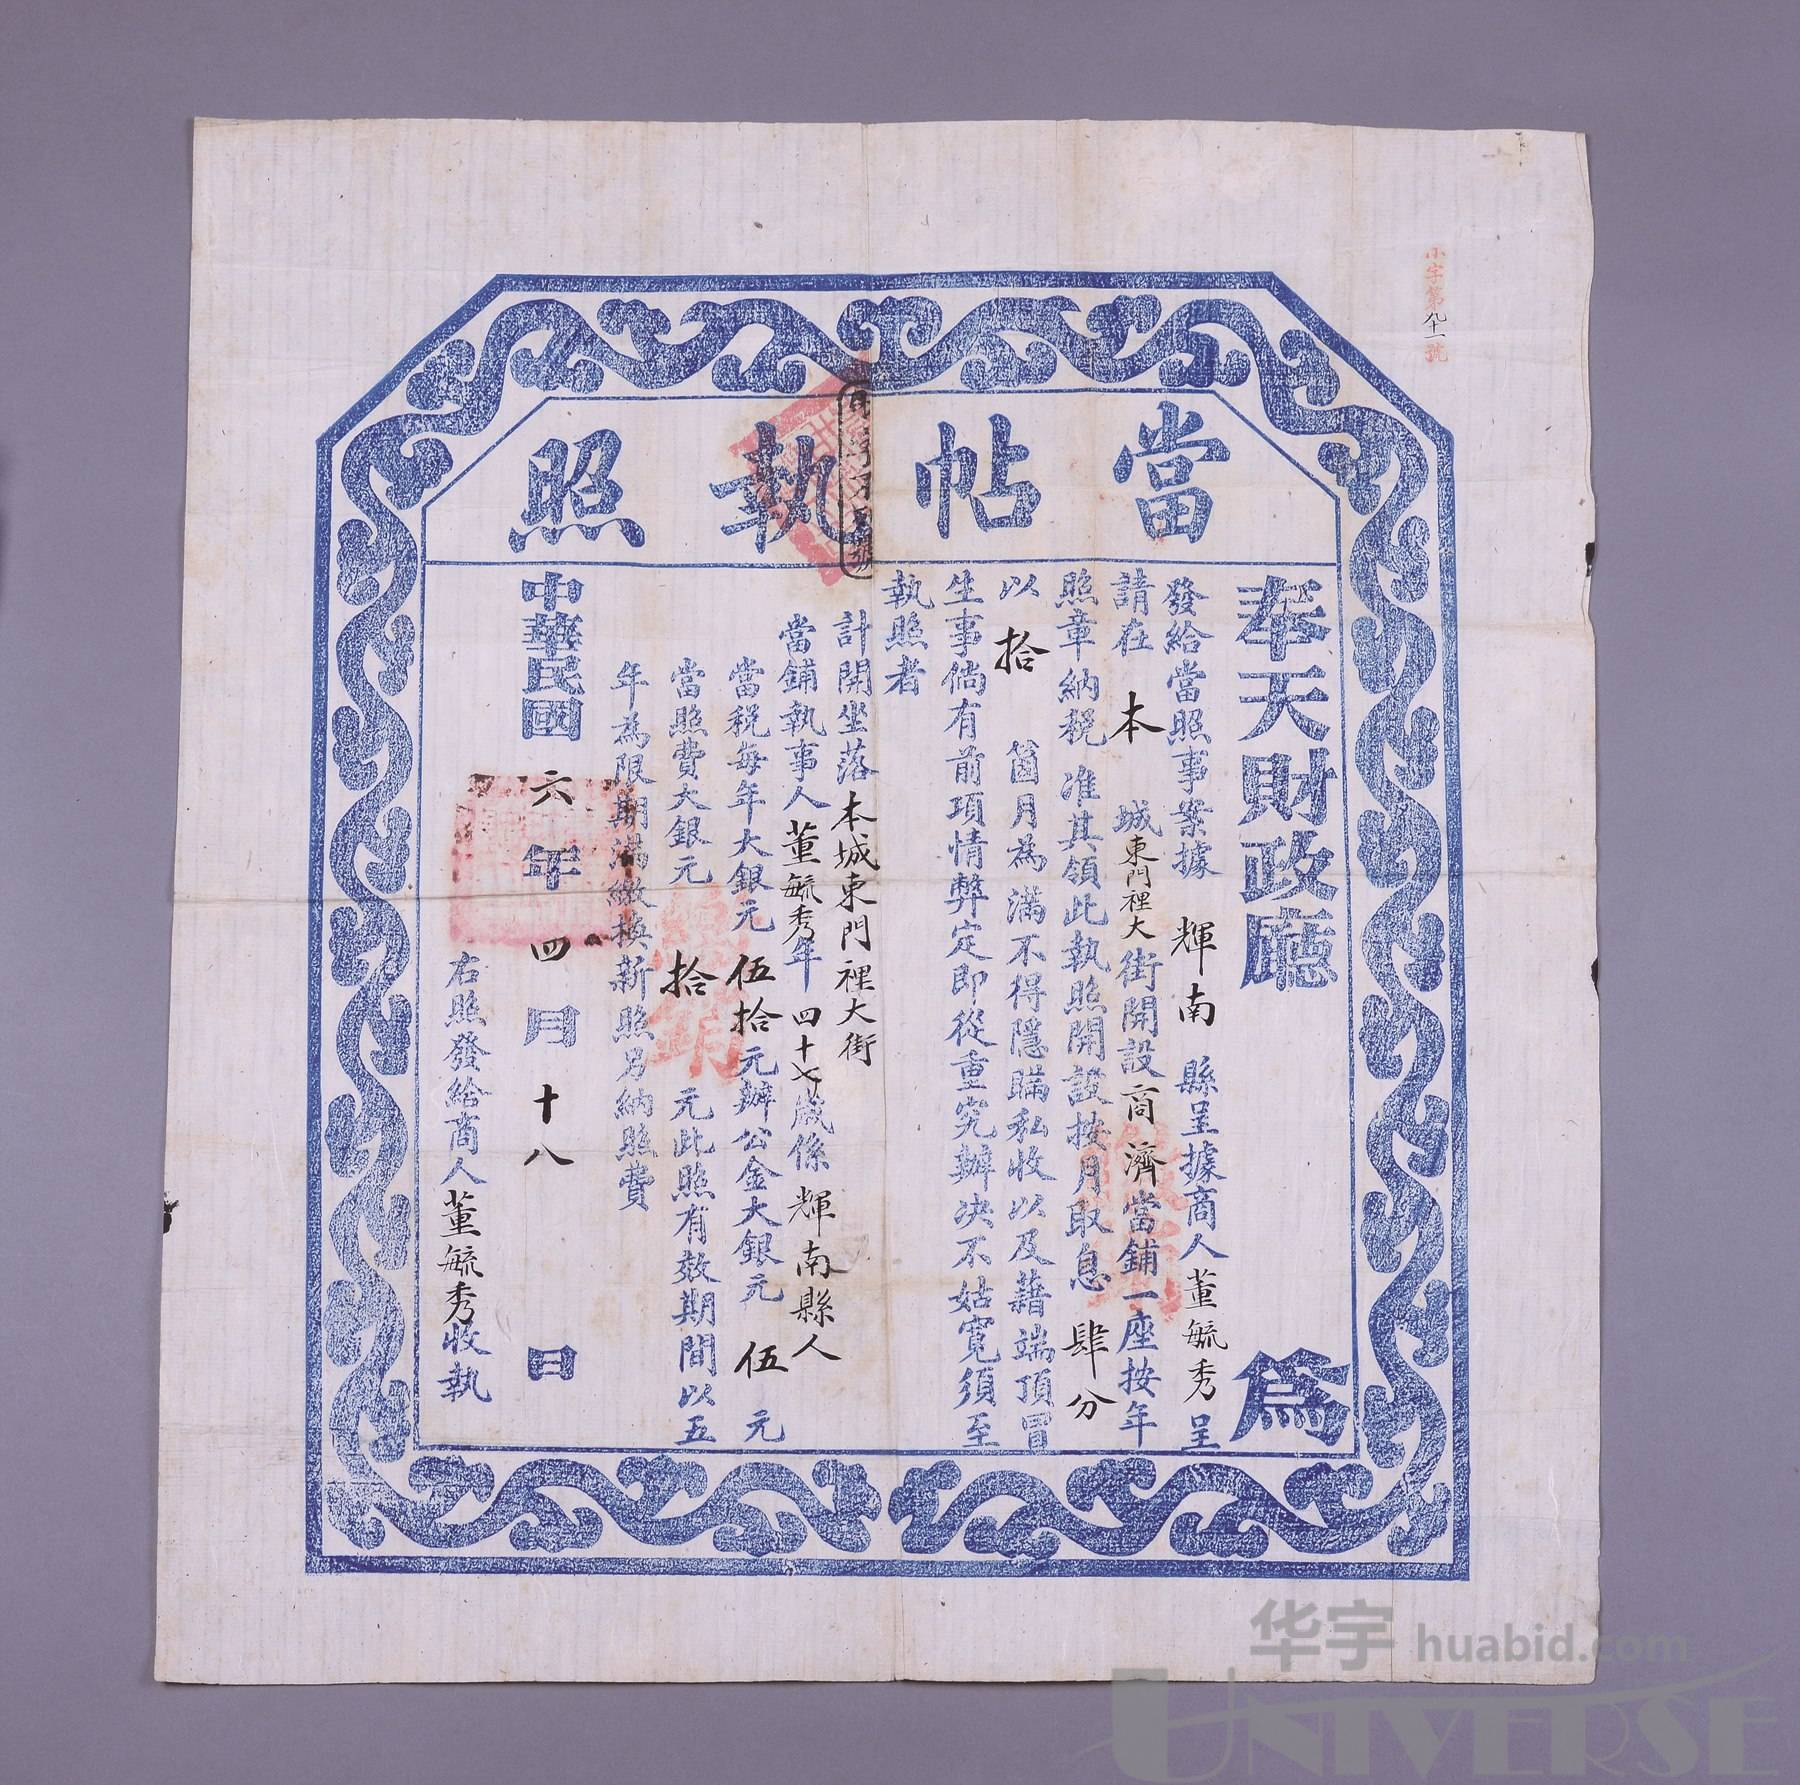 小字第九十一號
當帖執照
奉天財政廳　為
發給當照事案據　輝南　縣呈據商人董毓秀呈
請在　本　城東門裡大街開設商濟當鋪一座按年
照章納稅　准其領此執照開設按月取息　肆分
以　拾　箇月為滿不得隱瞞私收以及藉端頂冒
生事倘有前項情弊定即從重究辦决不姑寬須至
執照者
計開坐落本城東門裡大街
當鋪執事人董毓秀年　四十七歲係　輝南縣人
當稅每年大銀元　伍拾元辦公金大銀元　伍　元
當照費大銀元　拾　元此照有效期間以五
年為限期滿繳換新照另納照費
中華民國　六年四月十八日
右照發給商人董毓秀收執
华宇 huabid.com
UNIVERSE